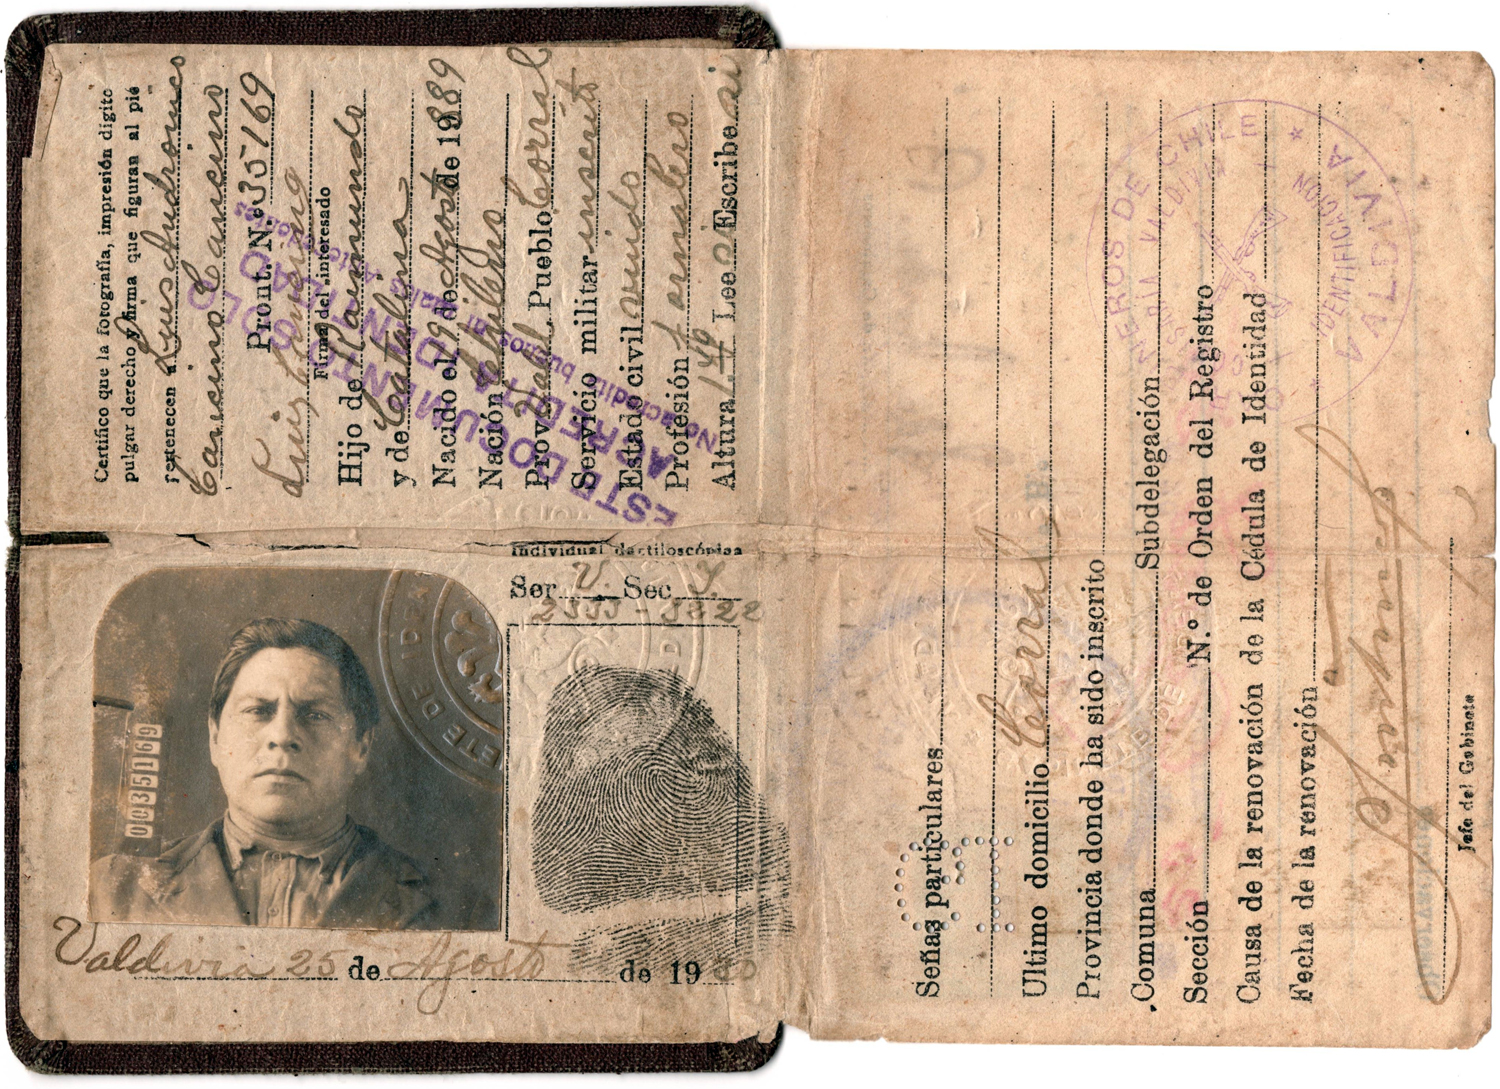 Certifico que la fotografía, impresión digito
pulgar derecho y firma que figuran al pié
pertenecen a Luis Andronico
Cancino Cancino
Pront. N.º 35169
Firma del interesado
Hijo de Raimundo
y de Catalina
Nacido el 19 de Agosto de 1889
Nación Chileno
Prov. Vald. Pueblo Corral
Servicio militar inscrito
Estado civil viudo
Profesión Jornalero
Altura 1,49 Lee si Escribe si
ESTE DOCUMENTO SOLO
ACREDITA IDENTIDAD
No acredita buenos ni malos Antecedentes
0035169
Individual dactiloscópica
Ser V. Sec
Valdivia 25 de Agosto de 1930
Señas particulares
Ultimo domicilio Corral
Provincia donde ha sido inscrito
Comuna Subdelegación
Sección N.º de Orden del Registro
Causa de la renovación de la Cédula de Identidad
Fecha de la renovación
Jefe del Gabinete
NEROS DE CHILE
VALDIVIA
IDENTIFICACION
VALDIVIA